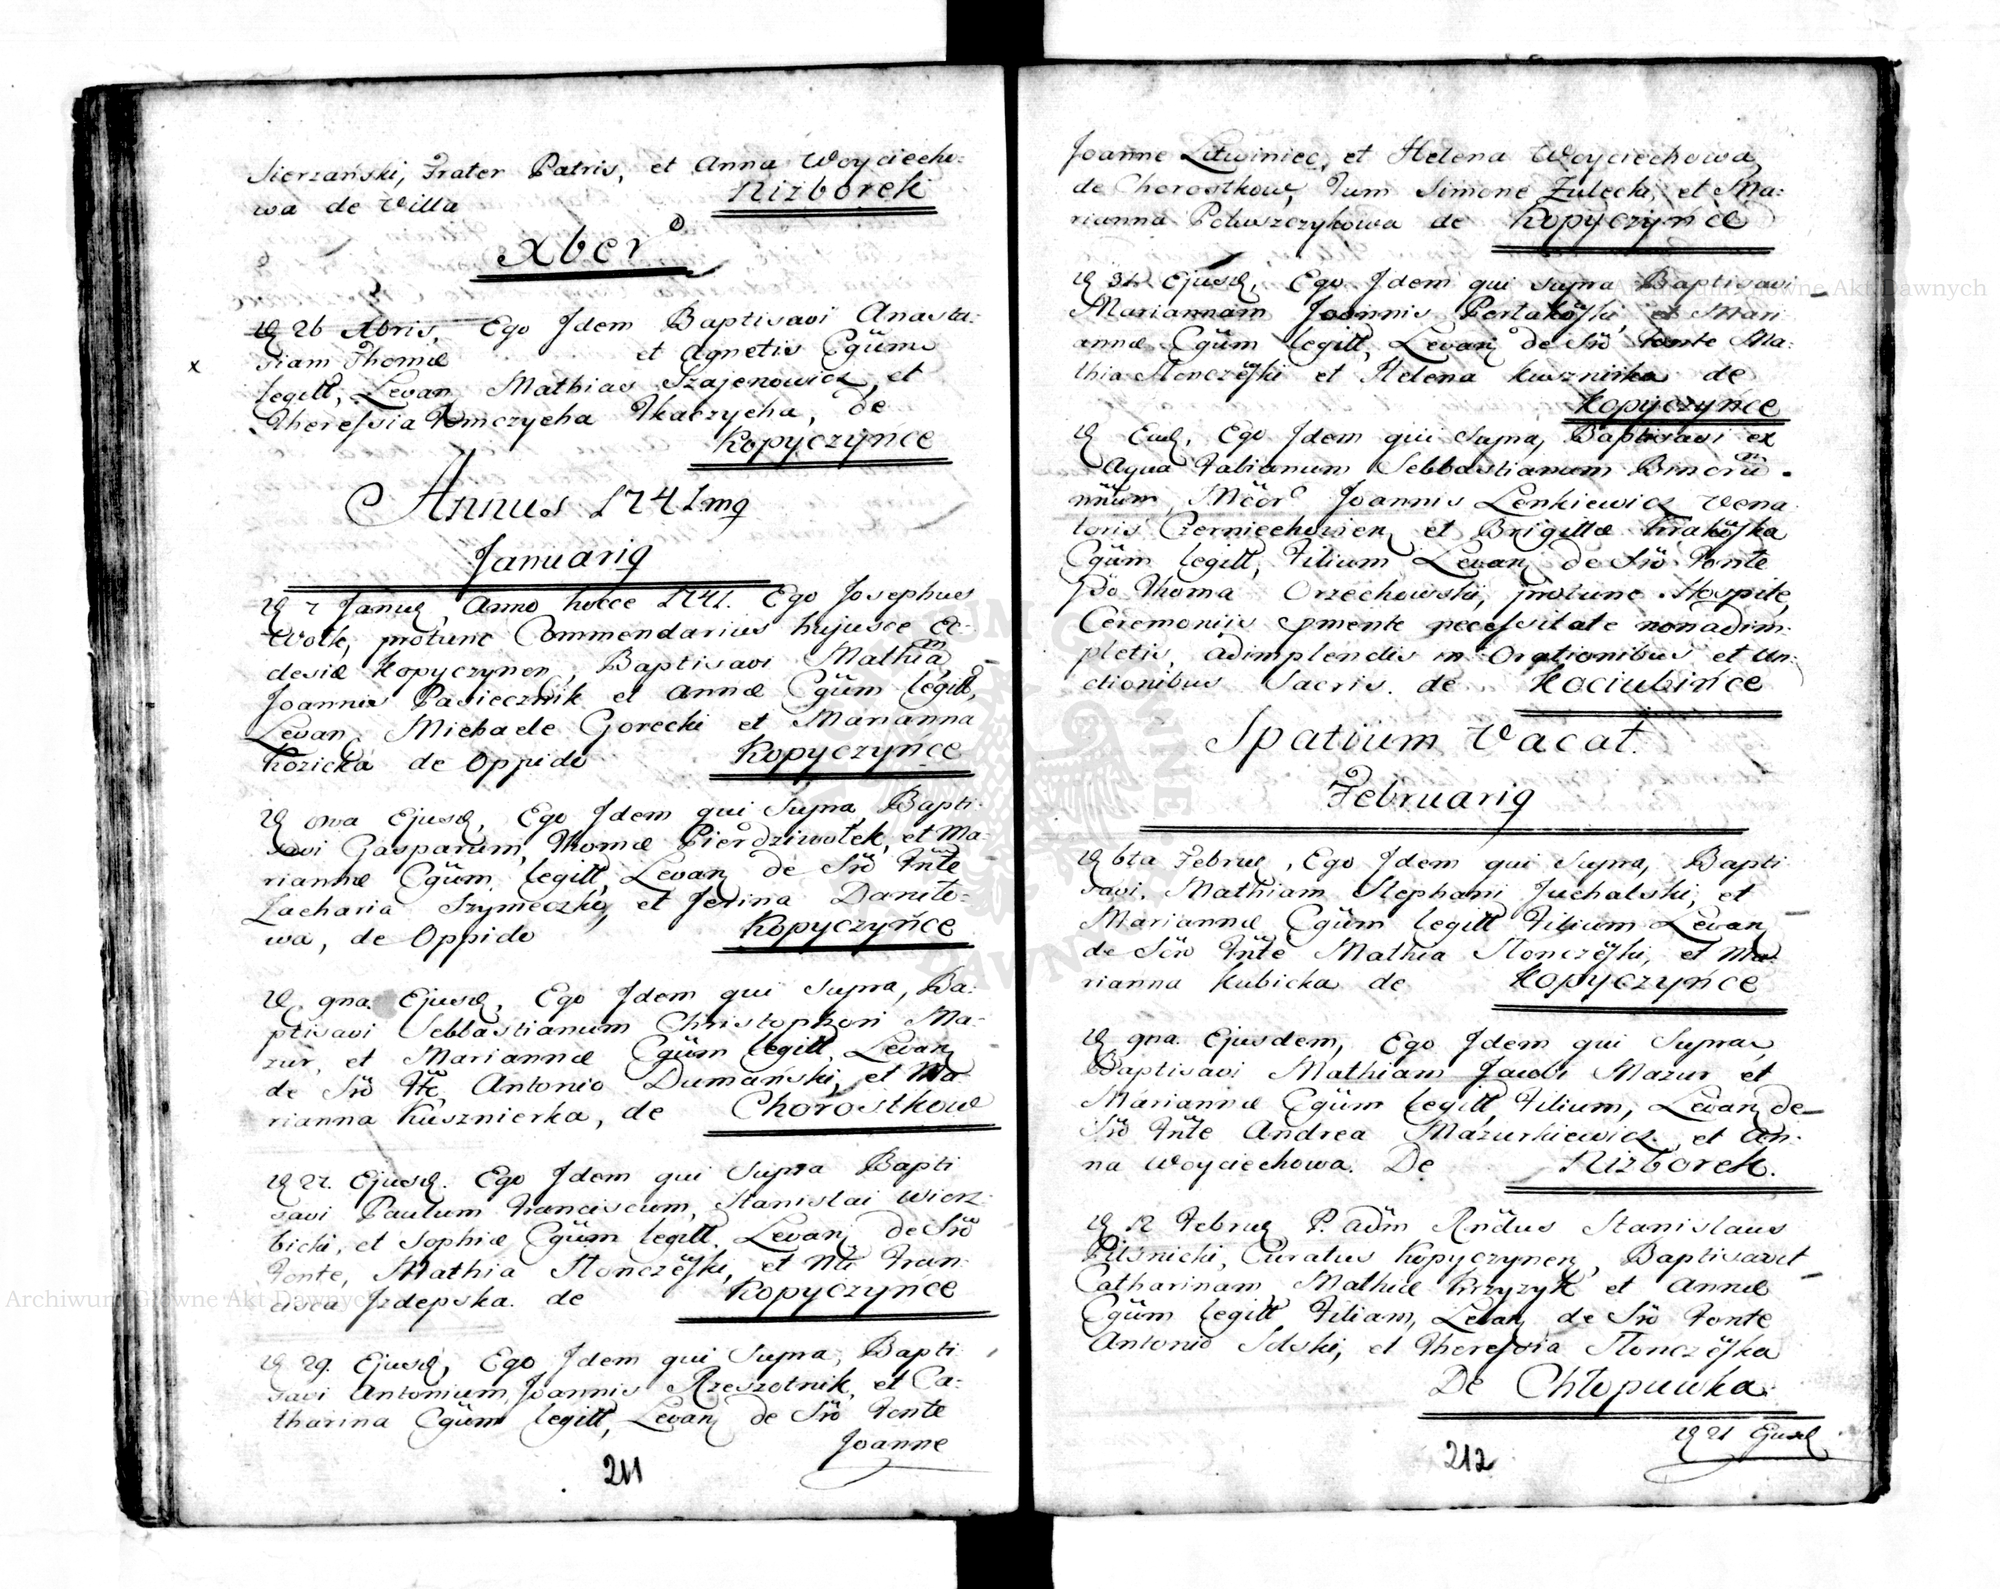 Sierzański, Frater Patris, et Anna Woyciecho:
wa de Villa Nizborek
Xber
26 Xbris, Ego Idem Baptisavi Anasta:
siam Thomæ et Agnetis Cgüm
x
legitt, Levan Mathias Szajenowicz, et
Theressia Tkaczycha, de
Kopyczyńce
Annus 1741mq
Januariq
7 Janu Anno hocce 1741. Ego Josephus
Wolk, protunc Commendarius hujusce Ec:
clesiæ Kopyczynen, Baptisavi Mathiam
Joannis Pasiecznik et Annæ Cgüm legitt,
Levan Michaele Gorecki et Marianna
Kozicka de Oppido Kopyczyńce
Ejusd, Ego Idem qui Supra, Bapti:
savi Gasparum, Thomæ Pierdziwolek, et Ma:
riannæ Cgüm legitt, Levan de Sro Fnte
Zacharia Szymeczko, et Jerina Danilo:
wa, de Oppido Kopyczyńce
9na Ejusd, Ego Idem qui Supra, Ba:
ptisavi Sebbastianum Christophori Ma:
zur, et Mariannæ Cgüm legitt, Levan
de Sro Fte Antonio Dumański, et Ma
rianna Kusznierka, de Chorostkow
27. Ejusd. Ego Idem qui Supra Bapti
savi Paulum Franciscum, Stanislai Wierz:
bicki, et Sophiæ Cgüm legitt. Levan de Sro
Fonte, Mathia Słonczeski, et Fran:
cisca Izdepska. de Kopyczynce
29. Ejusd, Ego Idem qui Supra, Bapti
savi Antonium, Joannis Rzeszotnik, et Ca:
tharina Cgüm legitt, Levan de Sro Fonte
Joanne
211
Joanne Litwiniec, et Helena Woyciechowa
de Chorostkow, Tum Simone Zulecki, et Ma:
rianna Poluszczykowa de Kopyczyńce
31 Ejusd, Ego Idem qui supra Baptisavi
Mariannam Joannis et Mari
annæ Cgüm legitt, Levan de Sro Fonte Ma:
thia Słonczeski et Helena Kusznirka de
Kopyczyńce
Ead, Ego Idem qui Supra, Baptisavi ex
Aqua Fabianum Sebbastianum
Joannis Lenkiewicz Vena
toris Czerniechovien et Brigittæ
Cgüm legitt, Filium Levan de Sro Fonte
Thoma Orzechowski, protunc Hospite,
Ceremoniis necessitate nonadim:
pletis, adimplendis in Orationibus et Un:
ctionibus Sacris. de Kociubińce
Spatium Vacat.
Februariq
6ta Febru, Ego Idem qui Supra, Bapti
savi. Mathiam Stephani Juchalski, et
Mariannæ Cgüm legitt Filium Levan
de Sro Fnte Mathia Słonczeski, et Ma
rianna Kubicka de Kopyczyńce
9na Ejusdem, Ego Idem qui Supra
Baptisavi Mathiam Jacobi Mazur et
Mariannæ Cgüm legitt, Filium, Levan de
Sro Fnte Andrea Mazurkiewicz, et An:
na Woyciechowa. De Nizborek.
12 Febru P. Adm Rndus Stanislaus
Curatus Kopyczynen, Baptisavit
Catharinam Mathiæ Krzyzyk et Annæ
Cgüm legitt Filiam, Levan de Sro Fonte
Antonio Solski, et Theressia Słonczeska
De Chłopuwka.
21 Ejusd
212
Archiwum Główne Akt Dawnych
Archiwum Główne Akt Dawnych